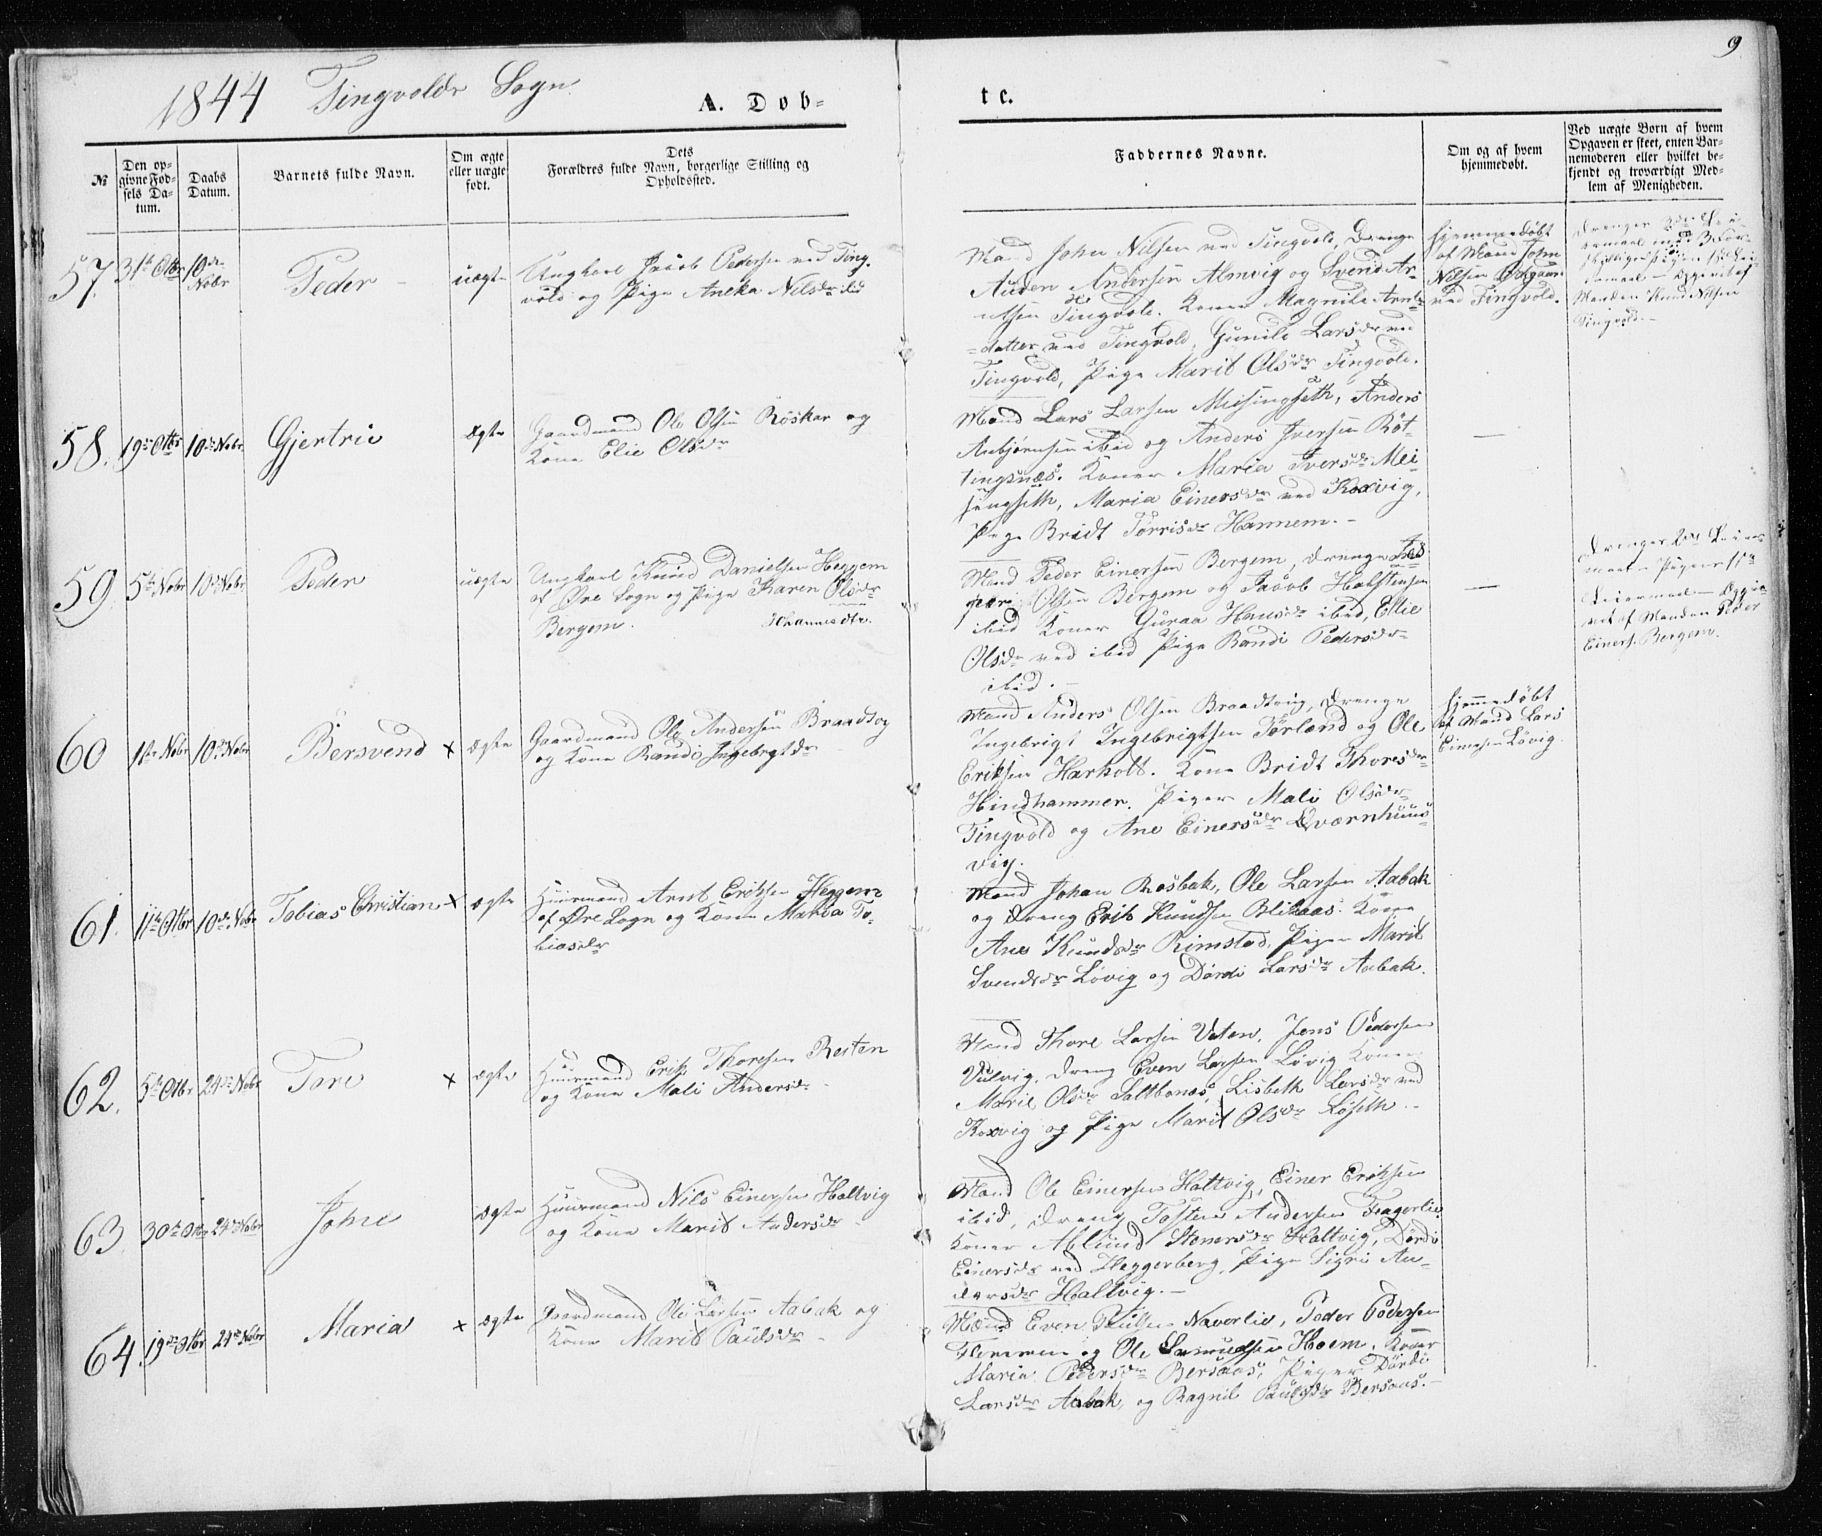 9
1844 Tingvolds Sogn.
A. Dob-
te.
№
Den op-
givne Fød-
sels Da-
tum.
Daabs
Datum.
Barnets fulde Navn.
Om ægte
eller uægte
født.
Dets
Forældres fulde Navn, borgerlige Stilling og
Opholdssted.
Faddernes Navne.
Om og af hvem
hjemmedøbt.
Ved uægte Børn af hvem
Opgaven er skeet, enten Bar-
nemoderen eller hvilket be-
kjendt og troværdigt Med-
lem af Menigheden.
57. 31te Otbr 10de Nobr Peder uægte
Ungkarl Jacob Pedersen ved Ting-
vold og Pige Aneka Nilsdr ibid
Mand John Nilsen ved Tingvold, Drenge
Auden Andersen Almvig og Svend Ar-
ntsen Tingvold. Koner Magnild Arnts-
datter ved Tingvold, Gunild Larsdr ved
Tingvold, Pige Marit Olsdr Tingvold.
hjemmedøbt
af Mand John
Nilsen
ved Tingvold.
Manden Knud Nilsen
Tingvold.
58. 19de Otbr 10de Nobr Gjertrie ægte
Gaardmand Ole Olsen Røskar og
Kone Elie Olsdr
Mand Lars Larsen Meisingseth, Anders
Anbjørnsen ibid og Anders Iversen Røt-
tingsnæs. Koner Maria Iversdr Mei-
singseth, Maria Einersdr ved Koxvig,
Pige Bridt Tørrisdr Hannem.
59 5te Nobr 10de Nobr Peder uægte
Ungkarl Knud Danielsen Heggem
af Øre Sogn og Pige Karen Olsdr
Bergem. Johannesdtr.
Mand Peder Einersen Bergem, Drenge
Olsen Bergem og Jacob Halstensen
ibid Koner Guraa Hansdr ibid, Elie
Olsdr ved ibid Pige Randi Pedersdr
ibid.
Leiermaal
af Manden Peder
Einers. Bergem.
60 1ste Nobr 10de Nobr Bersvend × ægte
Gaardmand Ole Andersen Braadtvig
og Kone Randi Ingebrgtdr
Mand Anders Olsen Braadtvig, Drenge
Ingebrigt Ingebrigtsen Tørland og Ole
Eriksen Harholt. Kone Bridt Thoresdr
Hindhammer. Piger Mali Olsdr
Tingvold og Ane Einersdr Qværnhuus-
vig.
hjemmedøbt
af Mand Lars
Einersen Løvig.
61. 11te Otbr 10de Nobr Tobias Christian × ægte
Huusmand Arnt Eriksen Heggem
af Øre Sogn og Kone Maria To-
biasdr
Mand Johan Rosbak, Ole Larsen Aabak
og Dreng Erik Knudsen Blikaas. Kone
Ane Knudsdr Rimstad, Piger Marit
Svendsdr Løvig og Dordi Larsdr Aabak.
62. 5te Otbr 24de Nobr Tore × ægte
Huusmand Erik Thoresen Resten
og Kone Mali Andersdr
Mand Thore Larsen Vaten, Jens Pedersen
Vulvig, Dreng Even Larsen Løvig Koner
Marit Olsdr Saltbones, Lisbeth Larsdr ved
Koxvig og Pige Marit Olsdr Løseth.
63. 30te Otbr 24de Nobr John ægte
Huusmand Nils Einersen Holtvig
og Kone Marit Andersdr
Mand Ole Einersen Holtvig, Einer Eriksen
ibid, Dreng Tosten Andersen Fagerlie
Koner Aslaug Stenersdr Holtvig, Dordi
Einersdr ved Heggerberg, Pige Sigri An-
dersdr Holtvig.
64. 19de Otbr 24de Nobr Maria × ægte
Gaardmand Ole Larsen Aabak og
Kone Marit Paulsdr
Mænd Even Paulsen Naverlie, Peder Pedersen
og Ole Hoem, Koner
Maria Pedersdr Bersaas, Piger Dordi
Larsdr Aabak, og Ragnil Paulsdr Bersaas.